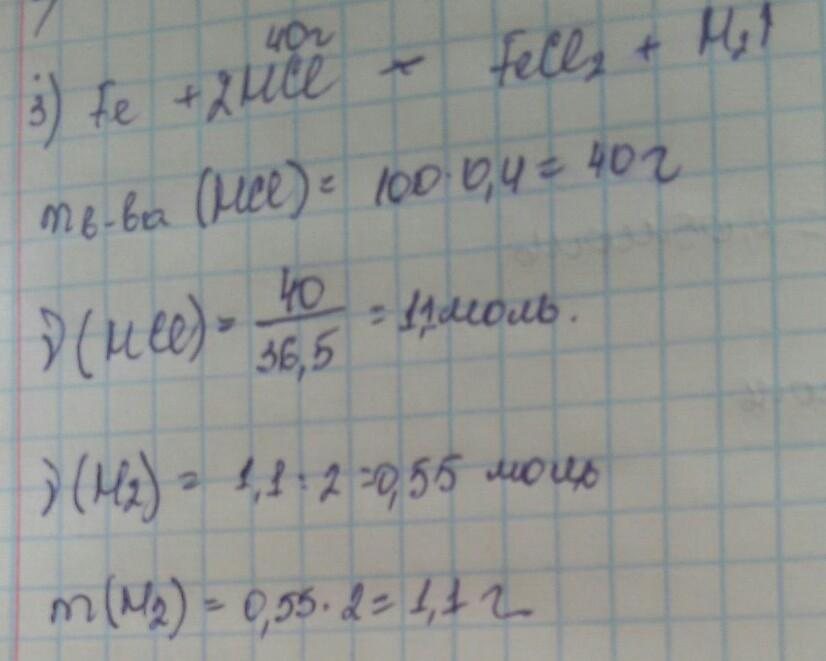 40г
3) Fe + 2HCl → FeCl₂ + H₂↑
m в-ва (HCl) = 100·0,4 = 40 г
ν(HCl) = 40/36,5 = 1,1 моль.
ν(H₂) = 1,1 : 2 = 0,55 моль
m(H₂) = 0,55·2 = 1,1 г